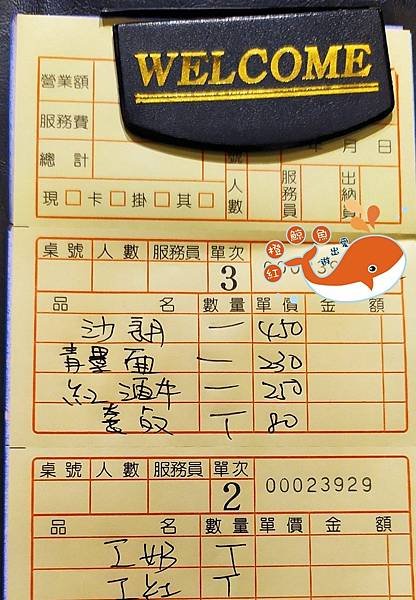 WELCOME
營業額
服務費
總計
號 年 月 日
現 卡 掛 其
人數 服務員 出納員
紅橙鯨魚游出愛
桌號 人數 服務員 單次
3
品名 數量 單價 金額
沙朗 一 450
青墨面 一 230
紅酒牛 一 250
套 丁 80
桌號 人數 服務員 單次
2 00023929
品名 數量 單價 金額
工奶 丁
工紅 丁